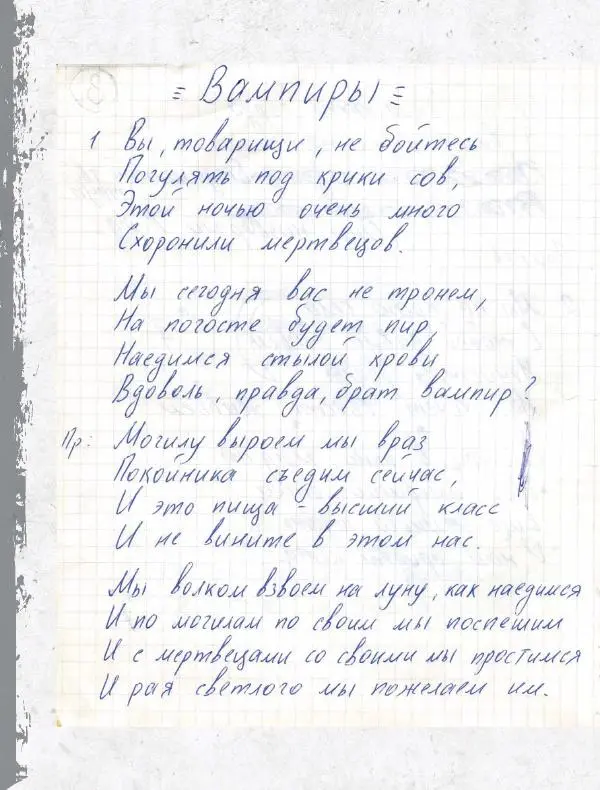 8
= Вампиры =
1 Вы, товарищи, не бойтесь
Погулять под крики сов,
Этой ночью очень много
Схоронили мертвецов.
Мы сегодня вас не тронем,
На погосте будет пир,
Наедимся стылой крови
Вдоволь, правда, брат вампир?
Пр: Могилу выроем мы враз
Покойника съедим сейчас,
И это пища - высший класс
И не вините в этом нас.
Мы волком взвоем на луну, как наедимся
И по могилам по своим мы поспешим
И с мертвецами со своими мы простимся
И рая светлого мы пожелаем им.